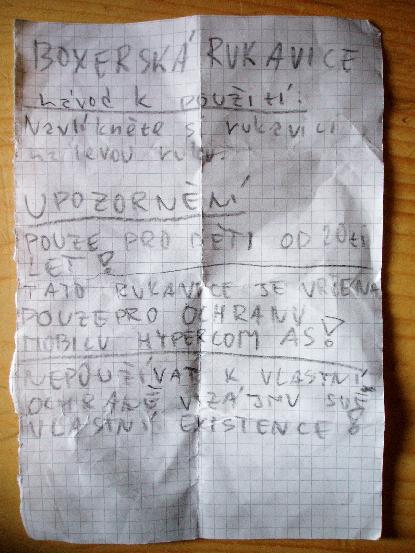 BOXERSKÁ RUKAVICE
návod k použití:
Navlíkněte s rukavici
na levou ruku.
UPOZORNĚNÍ
POUZE PRO DĚTI OD 20ti
LET!
TATO RUKAVICE JE URČENA
POUZE PRO OCHRANU
MOBILU HYPERCOM AS!
NEPOUŽÍVAT K VLASTNÍ
OCHRANĚ V ZÁJMU SVÉ
VLASTNÍ EXISTENCE!